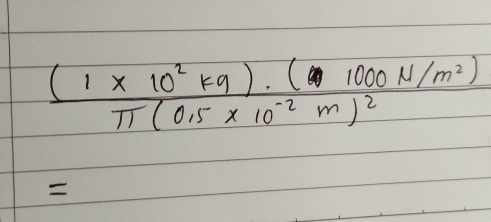 ( 1 x 10² kg ) . ( 1000 N/m² )
π ( 0,5 x 10⁻² m )²
=